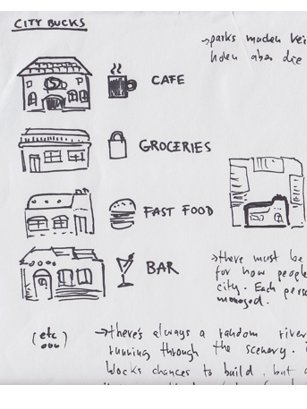 CITY BUCKS
CAFE
GROCERIES
FAST FOOD
BAR
(etc
→there must be
for how people
city. Each
managed.
→there's always a random river
running through the scenery.
blocks chances to build, but